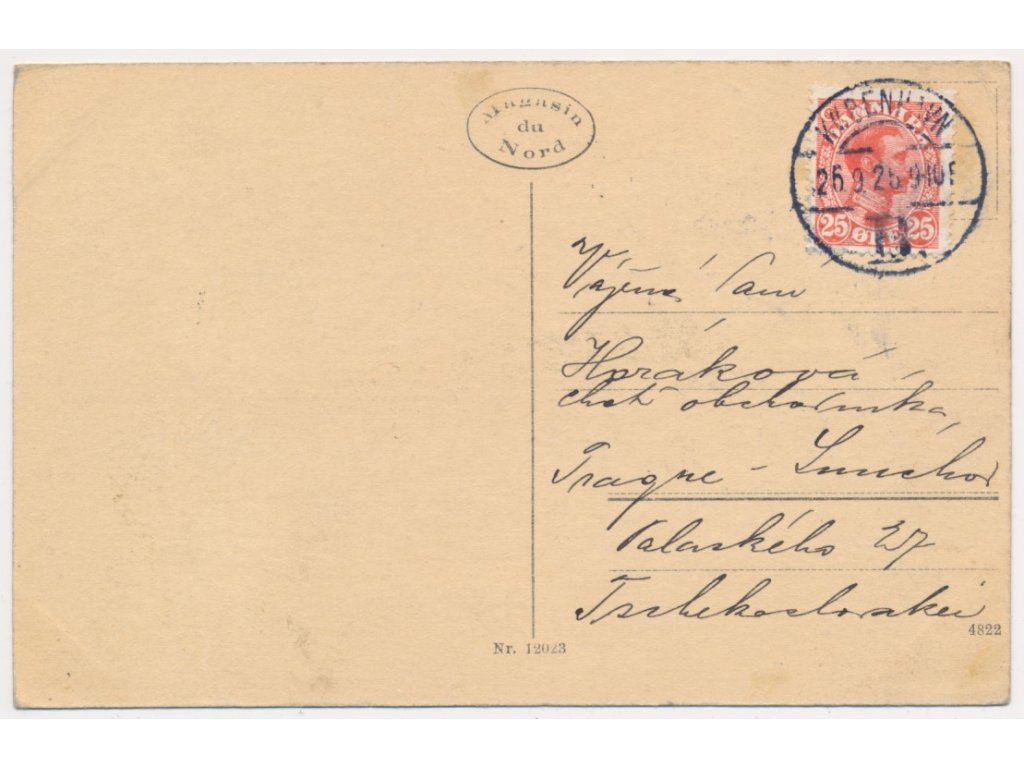 Magasin
du
Nord
KØBENHAVN
26.9.25.9-10F
DANMARK
25 ØRE 25
Vážená Paní
Horáková
choť obchodníka,
Prague – Smíchov
Palackého 27
Tschekoslovakei
4822
Nr. 12023